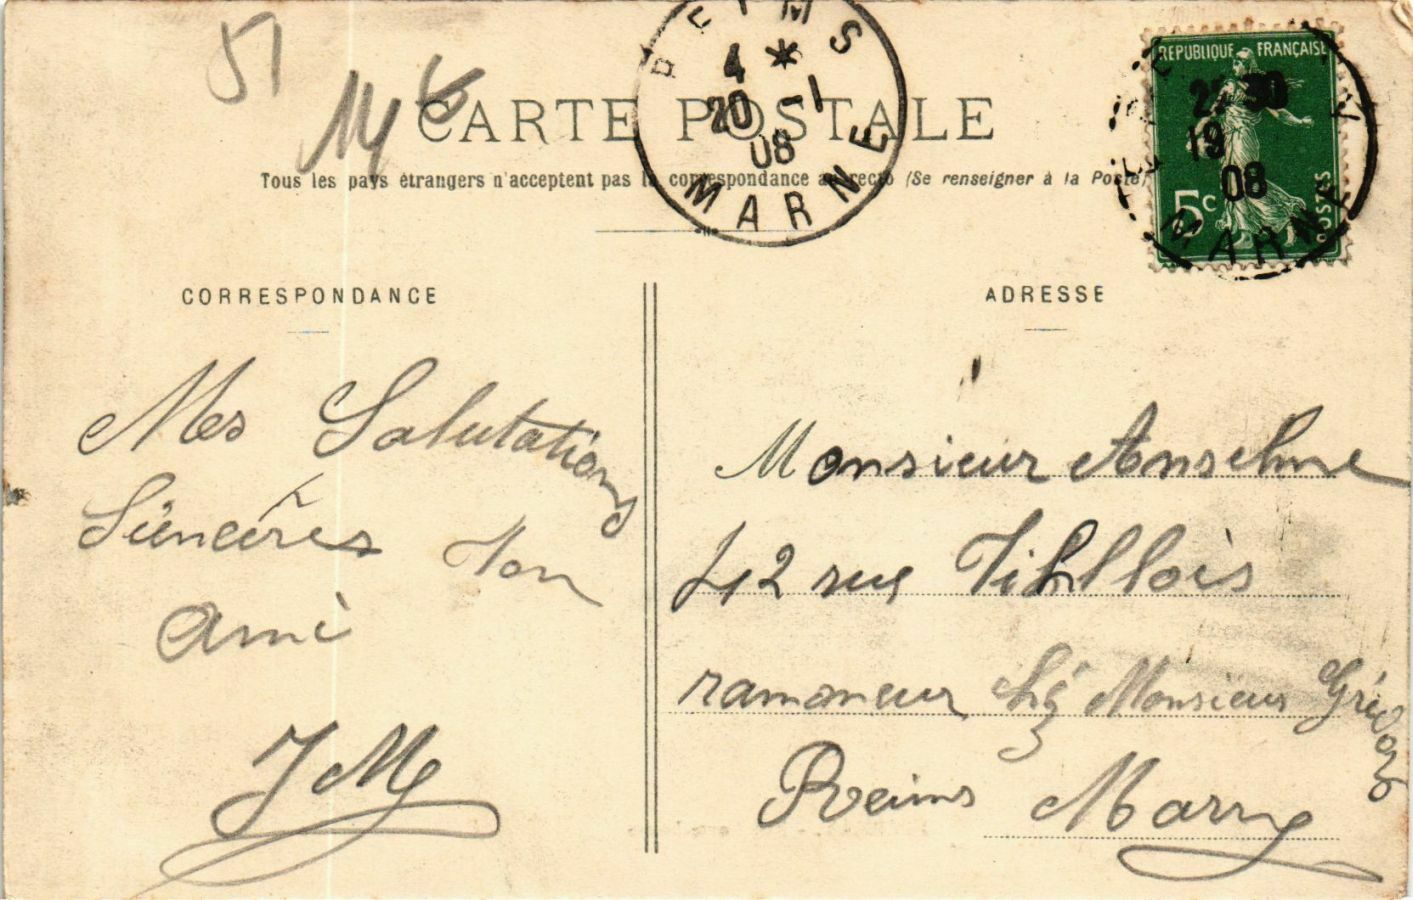 51
14
CARTE POSTALE
Tous les pays étrangers n'acceptent pas la correspondance au recto (Se renseigner à la Poste)
REIMS
4 *
20 -1
08
MARNE
REPUBLIQUE FRANÇAISE
19
08
5c
POSTES
MARNE
CORRESPONDANCE
Mes Salutations
Sincères Ton
Ami
JM
ADRESSE
Monsieur Anselme
42 rue
ramoneur chez Monsieur
Reims Marne